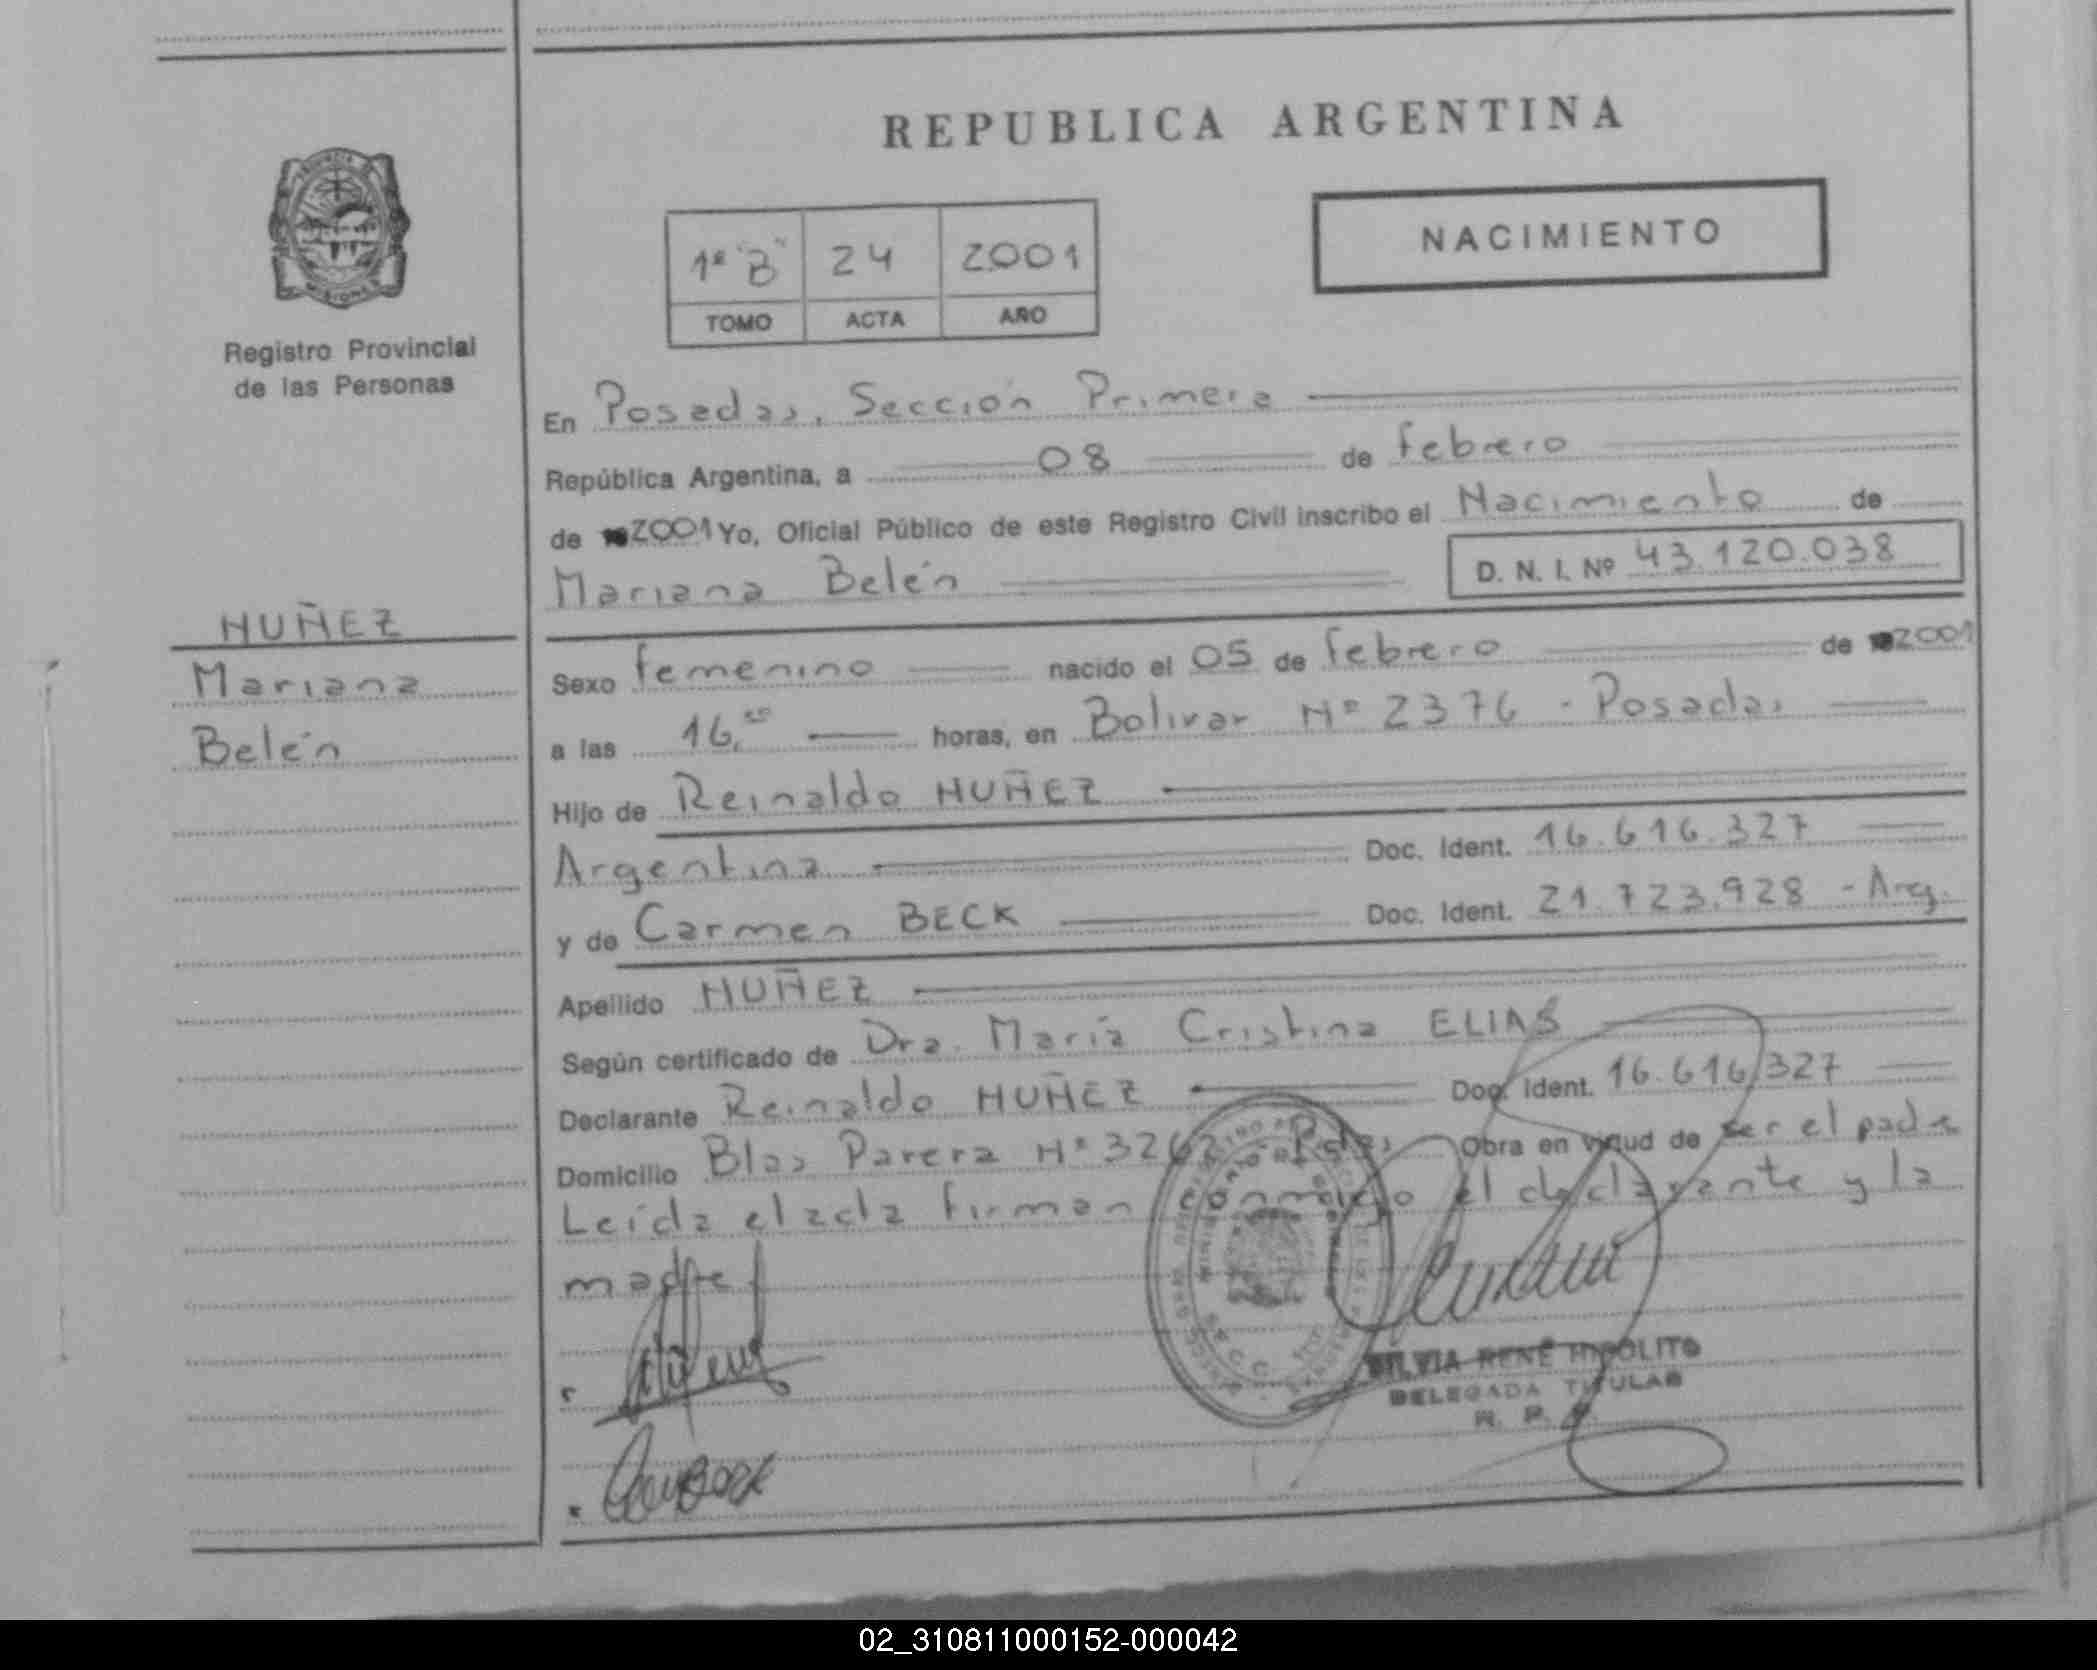 REPUBLICA ARGENTINA
NACIMIENTO
1º "B" 24 2001
TOMO ACTA AÑO
MISIONES
Registro Provincial
de las Personas
NUÑEZ
Mariana
Belén
En Posadas, Sección Primera
República Argentina, a 08 de febrero
de 2001 Yo, Oficial Público de este Registro Civil inscribo el Nacimiento de
Mariana Belén D. N. I. Nº 43.120.038
Sexo femenino nacido el 05 de febrero de 2001
a las 16, horas, en Bolivar Nº 2376 - Posadas
Hijo de Reinaldo NUÑEZ
Argentina Doc. Ident. 16.616.327
y de Carmen BECK Doc. Ident. 21.723.928 - Arg.
Apellido NUÑEZ
Según certificado de Dra. María Cristina ELIAS
Declarante Reinaldo NUÑEZ Doc. Ident. 16.616.327
Domicilio Blas Parera Nº 3262 - Pdas Obra en virtud de ser el padre
Leída el acta firman conmigo el declarante y la
madre
SILVIA RENÉ HIPOLITO
DELEGADA TITULAR
R. P. P.
02_310811000152-000042